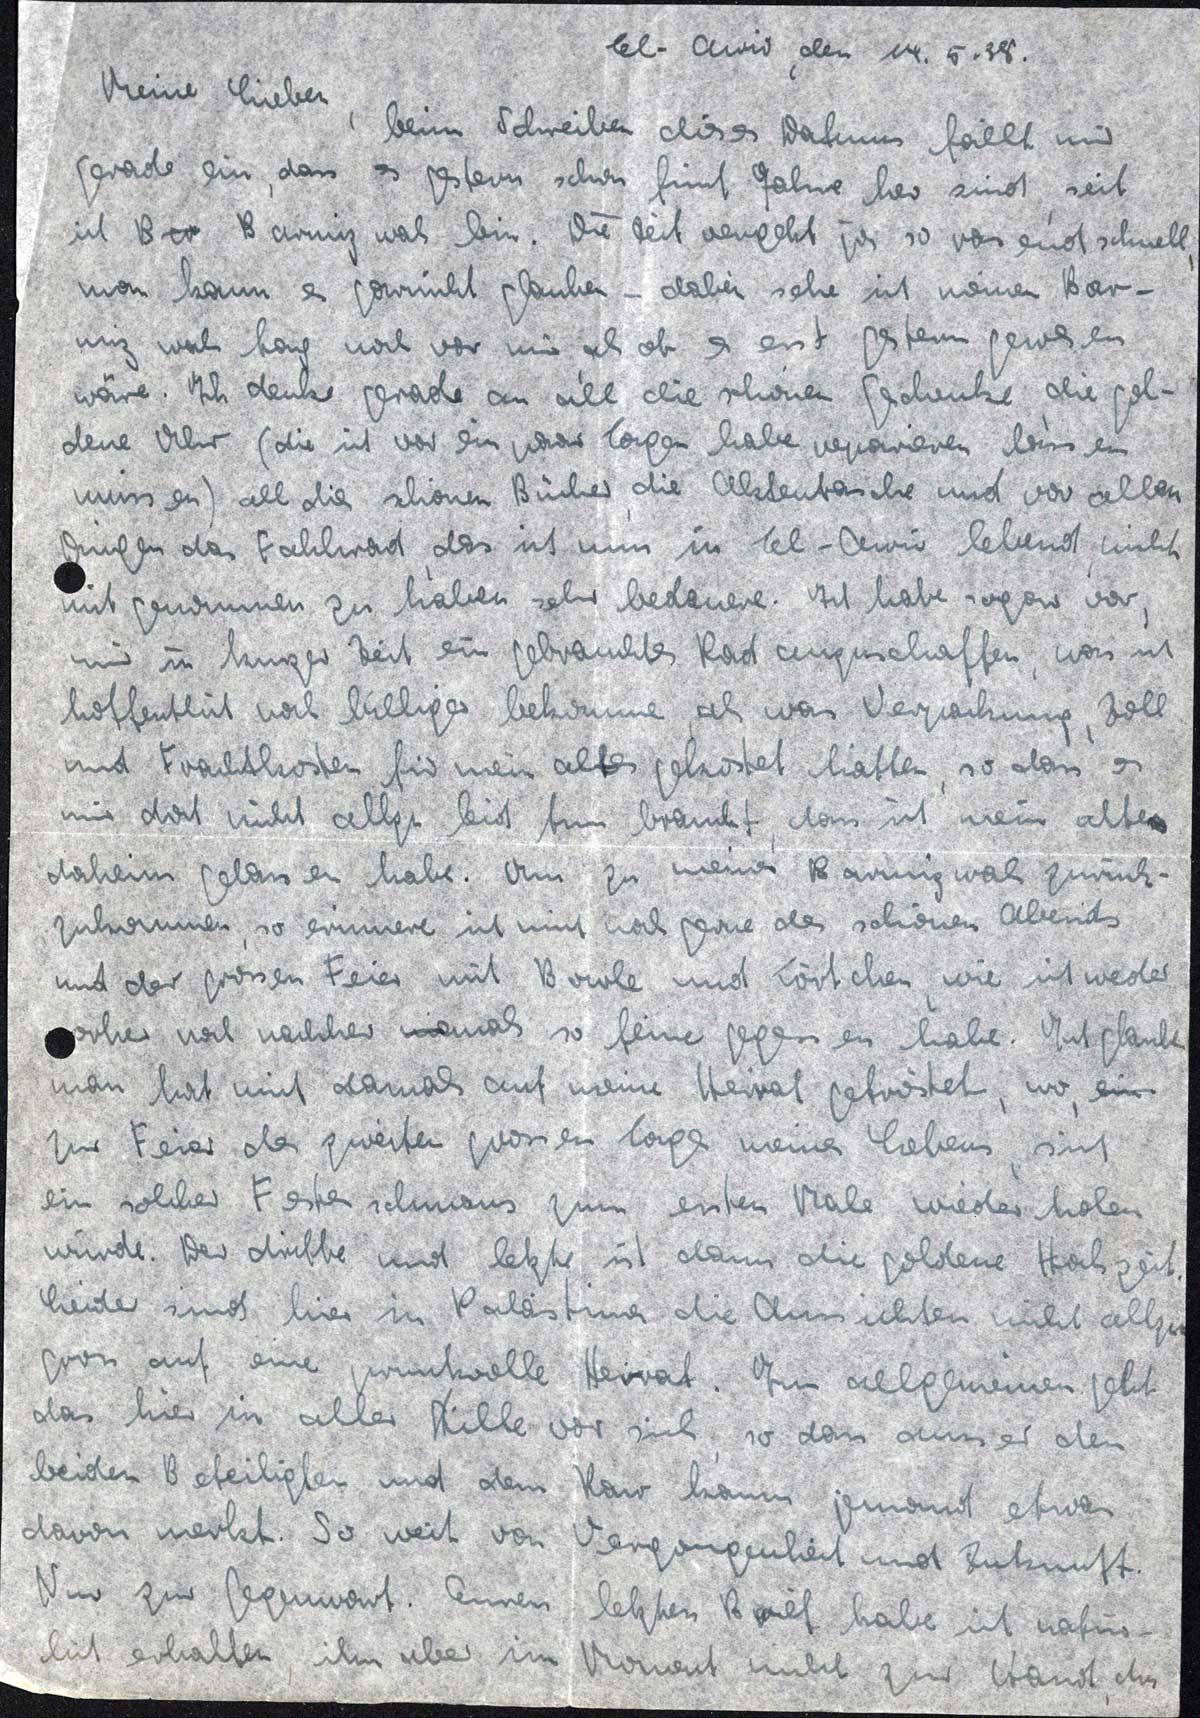 Tel-Awiw, den 14. 5. 38.
Meine Lieben,
beim Schreiben dieses Datums fällt mir
gerade ein, dass es gestern schon fünf Jahre her sind, seit
ich Bar Barmizwah bin. Die Zeit vergeht ja so rasend schnell,
man kann es garnicht glauben – dabei sehe ich meinen Bar-
mizwah tag noch vor mir als ob es erst gestern gewesen
wäre. Ich denke gerade an all die schönen Geschenke, die gol-
dene Uhr (die ich vor ein paar Tagen habe reparieren lassen
müssen) all die schönen Bücher, die Aktentasche und vor allen
Dingen das Fahrrad, das ich nun in Tel-Awiw lebend, nicht
mitgenommen zu haben sehr bedauere. Ich habe sogar vor,
mir in kurzer Zeit ein gebrauchtes Rad anzuschaffen, was ich
hoffentlich noch billiger bekomme als was Verpackung, Zoll
und Frachtkosten für mein altes gekostet hätten, so dass es
mir doch nicht allzu leid tun braucht, dass ich mein altes
daheim gelassen habe. Um zu meiner Barmizwah zurück-
zukommen, so erinnere ich mich noch gerne des schönen Abends
und der grossen Feier mit Bowle und Törtchen, wie ich weder
vorher noch nachher so feine gegessen habe. Ich glaube
man hat mich damals auf meine Heirat getröstet, wo,
zur Feier des zweiten grossen Tages meines Lebens, sich
ein solcher Festesschmaus zum ersten Male wiederholen
würde. Der dritte und letzte ist dann die goldene Hochzeit.
Leider sind hier in Palästina die Aussichten nicht allzu
gross auf eine prunkvolle Heirat. Im allgemeinen geht
das hier in aller Stille vor sich, so dass ausser den
beiden Beteiligten und dem Raw kaum jemand etwas
davon merkt. So weit von Vergangenheit und Zukunft.
Nur zur Gegenwart. Euren letzten Brief habe ich natür-
lich erhalten, ihn aber im Moment nicht zur Hand, das